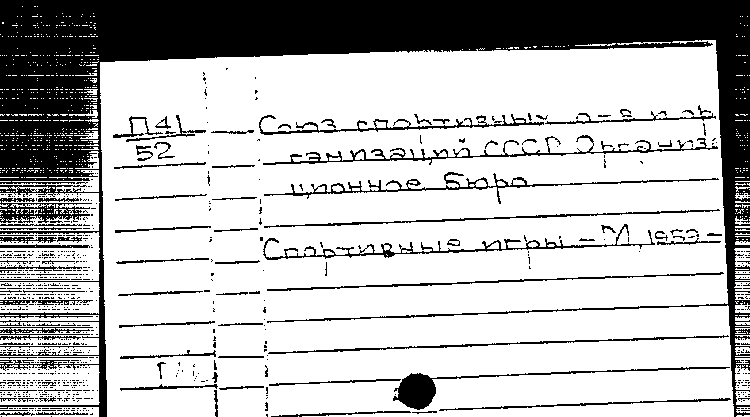 П41 Союз спортивных о-в и ор
52 ганизаций СССР Организа
ционное бюро
Спортивные игры – М, 1959 –